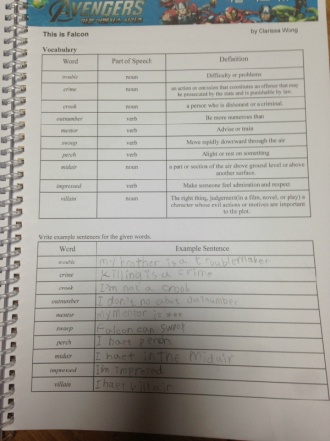 AVENGERS
This is Falcon
by Clarissa Wong
Vocabulary
Word Part of Speech Definition
trouble noun Difficulty or problems
crime noun an action or omission that constitutes an offense that may be prosecuted by the state and is punishable by law.
crook noun a person who is dishonest or a criminal.
outnumber verb Be more numerous than
mentor verb Advise or train
swoop verb Move rapidly downward through the air
perch verb Alight or rest on something
midair noun a part or section of the air above ground level or above another surface.
impressed verb Make someone feel admiration and respect
villain noun The right thing, judgement(in a film, novel, or play) a character whose evil actions or motives are important to the plot.
Write example sentences for the given words.
Word Example Sentence
trouble my brother is a troublemaker
crime Killing is a crime
crook I'm not a crook
outnumber I don't no about outnumber
mentor my mentor is
swoop Falcon can swoop
perch I haet perch
midair I haet in the midair
impressed I'm impressed
villain I haet villair